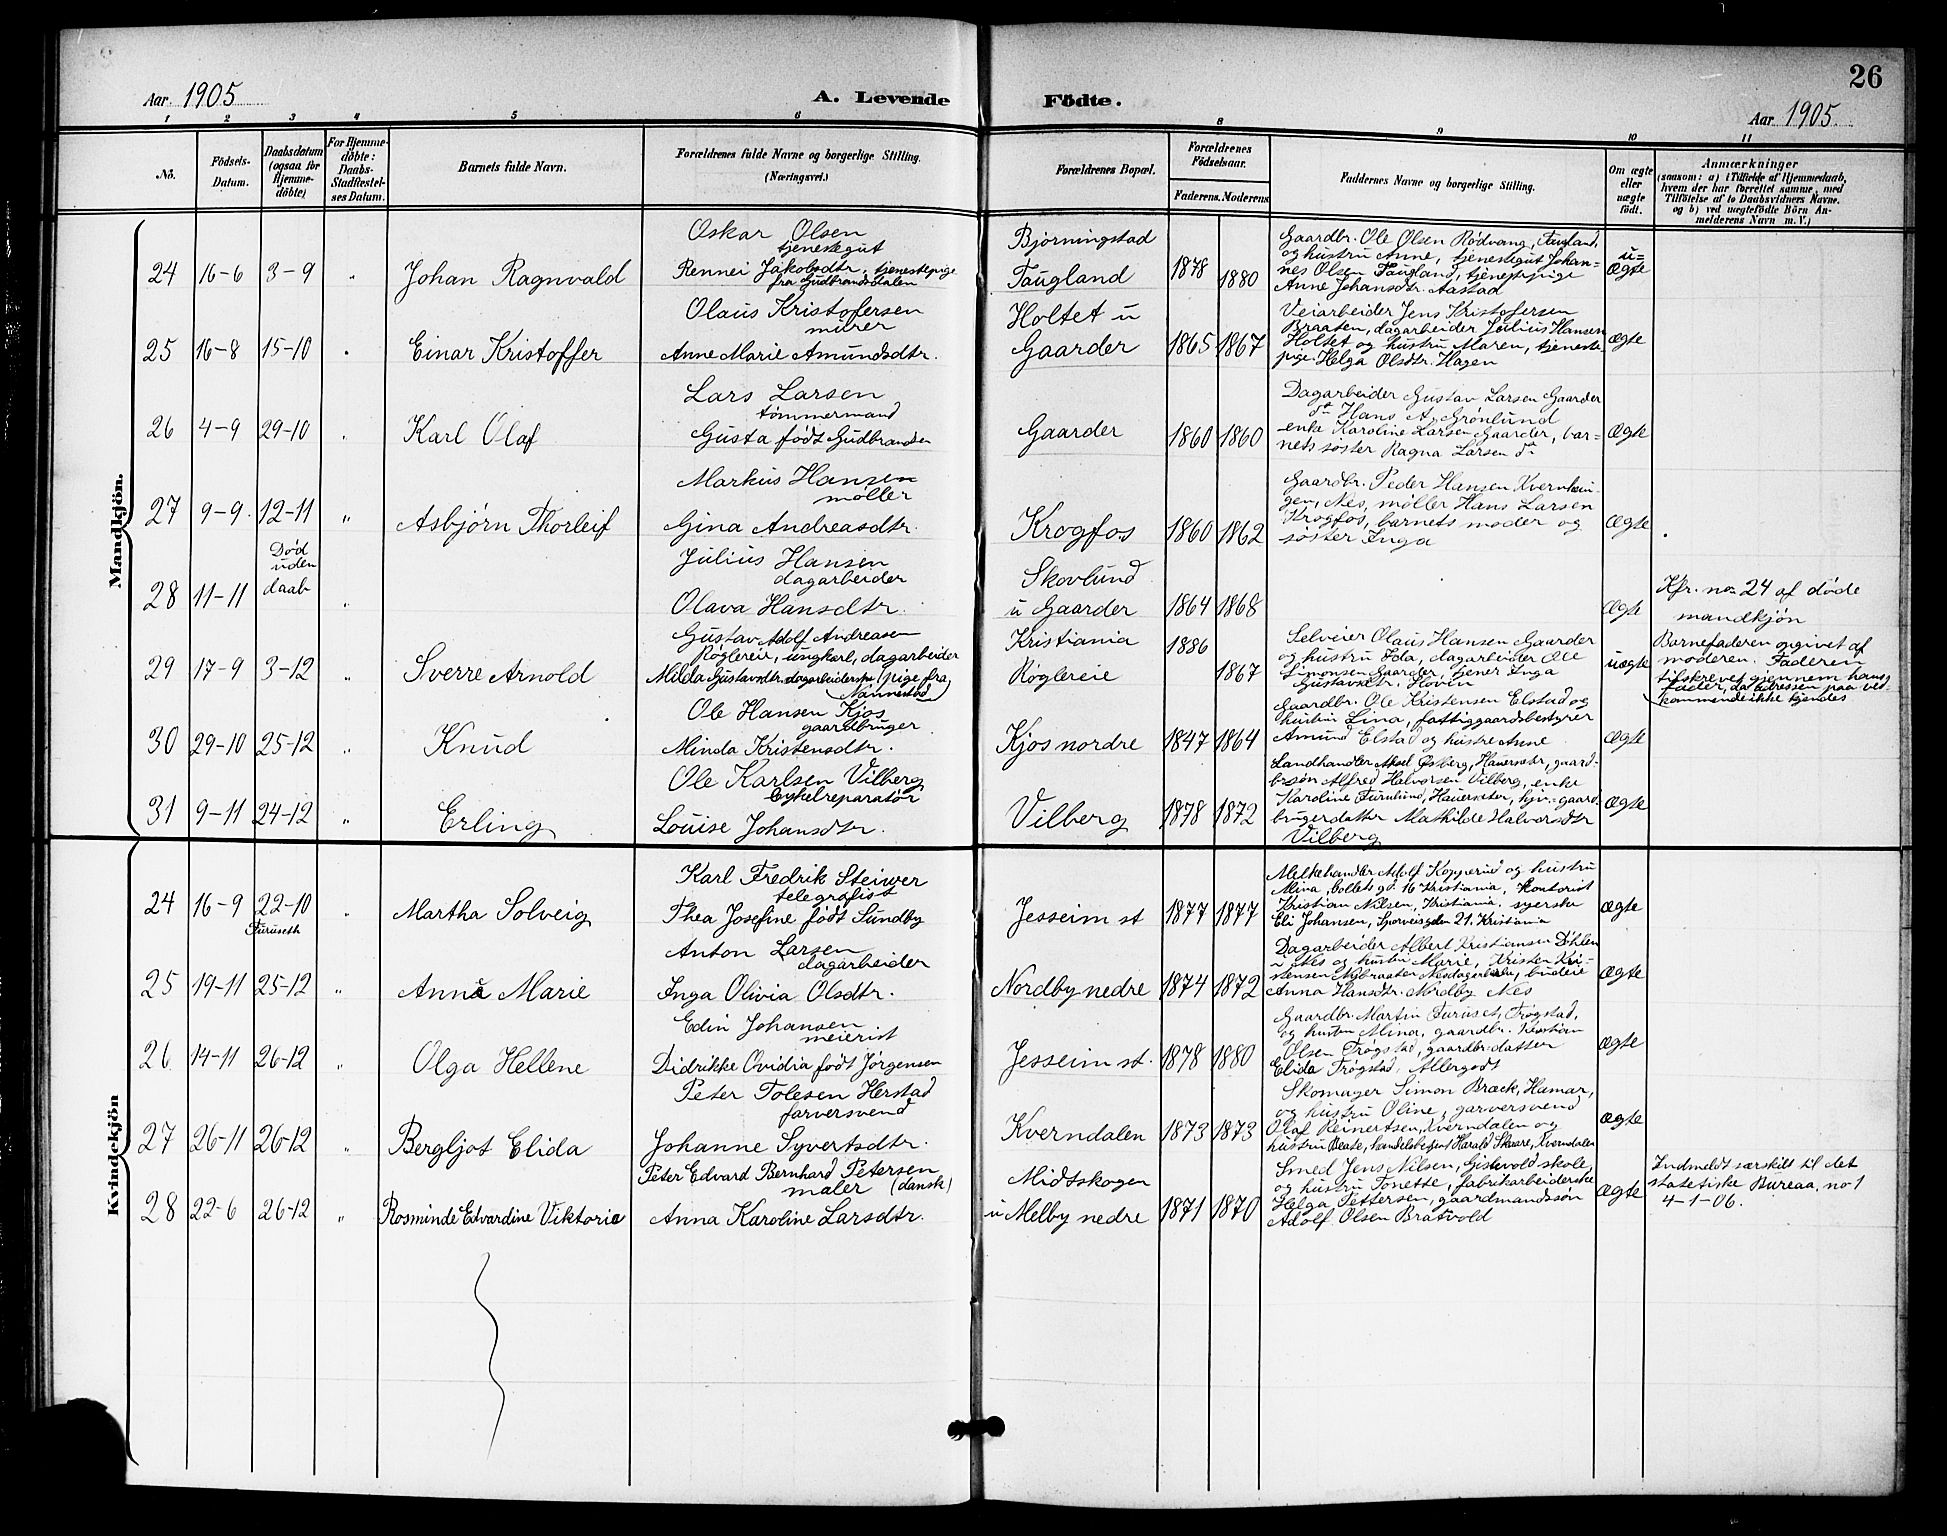 26
Aar. 1905
A. Levende
Födte.
Aar 1905.
1 2 3 4 5 6 8 9 10 11
No.
Födsels-
Datum.
Daabsdatum
(ogsaa for
Hjemme-
döbte)
For Hjemme-
döbte:
Daabs-
Stadfæstel-
ses Datum.
Barnets fulde Navn.
Forældrenes fulde Navne og borgerlige Stilling.
(Næringsvei.)
Forældrenes Bopæl.
Forældrenes
Födselsaar.
Faderens. Moderens.
Faddernes Navne og borgerlige Stilling.
Om ægte
eller
uægte
født.
Anmærkninger
(saasom: a) i Tilfælde af Hjemmedaab,
hvem der har forrettet samme, med
Tilføielse af to Daabsvidners Navne.
og b) ved uægtefödte Börn An-
melderens Navn m. V.)
Mandkjön.
24 16-6 3-9 " Johan Ragnvald
Oskar Olsen
tjenestegut
Rennei Jakobsdtr. tjenestepige
fra Gudbrandsdalen
Bjørningstad
Taugland
1878 1880
Gaardbr. Ole Olsen Rødvang, Taugland,
og hustru Anne, tjenestegut Johan=
nes Olsen Taugland, tjenestepige
Anne Johansdtr. Aastad
u=
Ægte
25 16-8 15-10 " Einar Kristoffer
Olaus Kristofersen
murer
Anne Marie Amundsdtr.
Holtet u
Gaarder
1865 1867
Veiarbeider Jens Kristofersen
Braaten, dagarbeider Julius Hansen
Holtet og hustru Maren, tjeneste-
pige Helga Olsdtr. Hagen
Ægte
26 4-9 29-10 " Karl Olaf
Lars Larsen
tømmermand
Gusta født Gudbrandsen
Gaarder
1860 1860
Dagarbeider Gustav Larsen Gaarder
do Hans A. Grønlund
enke Karoline Larsen Gaarder, bar=
nets søster Ragna Larsen do
Ægte
27 9-9. 12-11 " Asbjørn Thorleif
Markus Hansen
møller
Gina Andreasdtr.
Krogfos
1860 1862
Gaardbr. Peder Hansen Kvernhau-
gen, Nes, møller Hans Larsen
Krogfos, barnets moder og
søster Inga
Ægte
28 11-11
Død
uden
daab
"
Julius Hansen
dagarbeider
Olava Hansdtr.
Skovlund
u Gaarder
1864 1868
Ægte
Kfr. no 24 af døde
mandkjön
29 17-9 3-12 " Sverre Arnold
Gustav Adolf Andreasen
Røglereie, ungkarl, dagarbeider
Milda Gustavsdtr. (pige fra
Nannestad)
Kristiania
Røglereie
1886 1867
Selveier Olaus Hansen Gaarder
og hustru Ida, dagarbeider Ole
Simonsen Gaarder, tjener Inga
Gustavsdtr. Hovin
uægte
Barnefaderen opgivet af
moderen. Faderen
tilskrevet gjennem hans
Fader, da adressen paa ved-
kommende ikke kjendes
30 29-10 25-12 " Knud
Ole Hansen Kjos
gaardbruger
Minda Kristensdtr.
Kjos nordre
1847 1864
Gaardbr. Ole Kristensen Elstad og
hustru Lina, fattiggaardsbestyrer
Amund Elstad og hustru Anne
Ægte
31 9-11 24-12 " Erling
Ole Karlsen Vilberg
Cykelreparatør
Louise Johansdtr.
Vilberg
1878 1872
Landhandler Aksel Østberg, Hauerseter, gaard-
br.søn Alfred Halvorsen Vilberg, enke
Karoline Furulund, Hauerseter, hjv. gaard-
brugerdatter Mathilde Halvorsdtr
Vilberg
Ægte
Kvindekjön
24 16-9 22-10
Furuseth
" Martha Solveig
Karl Fredrik Steiwer
telegrafist
Thea Josefine født Sundby
Jesseim st
1877 1877
Melkehandler Adolf Kopperud og hustru
Mina, Colletsgd. 16 Kristiania, Kontorist
Kristian Nilsen, Kristiania, syerske
Eli Johansen, Sporveisgden 21. Kristiania
Ægte
25 19-11 25-12 " Anna Marie
Anton Larsen
dagarbeider
Inga Olivia Olsdtr.
Nordby nedre
1874 1872
Dagarbeider Albert Kristiansen Döhlen
i Nes og hustru Marie, Kristen Kri-
stensen Nybraaten Nes dagarbeider, budeie
Anna Hansdtr. Nordby Nes
Ægte
26 14-11 26-12 " Olga Hellene
Edin Johansen
meierist
Didrikke Ovidia født Jørgensen
Jesseim st.
1878 1880
Gaardbr. Martin Furuset, Trøgstad,
og hustru Mina, gaardbr. Kristian
Olsen Trøgstad, gaardbr.datter
Elida Trøgstad, Allergodt
Ægte
27 26-11 26-12 " Bergljot Elida
Peter Tolesen Herstad
farversvend
Johanne Syvertsdtr.
Kverndalen
1873 1873
Skomager Simon Bræck, Hamar,
og hustru Oline, garversvend
Olaf Reinertsen, Kverndalen og
hustru Beate, handelsbetjent Harald Skaare, Kverndalen
Ægte
28 22-6 26-12 " Rosminde Edvardine Viktoria
Peter Edvard Bernhard Petersen
maler (dansk)
Anna Karoline Larsdtr.
Midtskogen
u Melby nedre
1871 1870
Smed Jens Nilsen, Gistevold skole,
og hustru Tonette, fabrikarbeiderske
Helga Pettersen, gaardmandssøn
Adolf Olsen Bratvold
Ægte
Indmeldt særskilt til det
statistiske Bureaa, no 1
4-1-06.